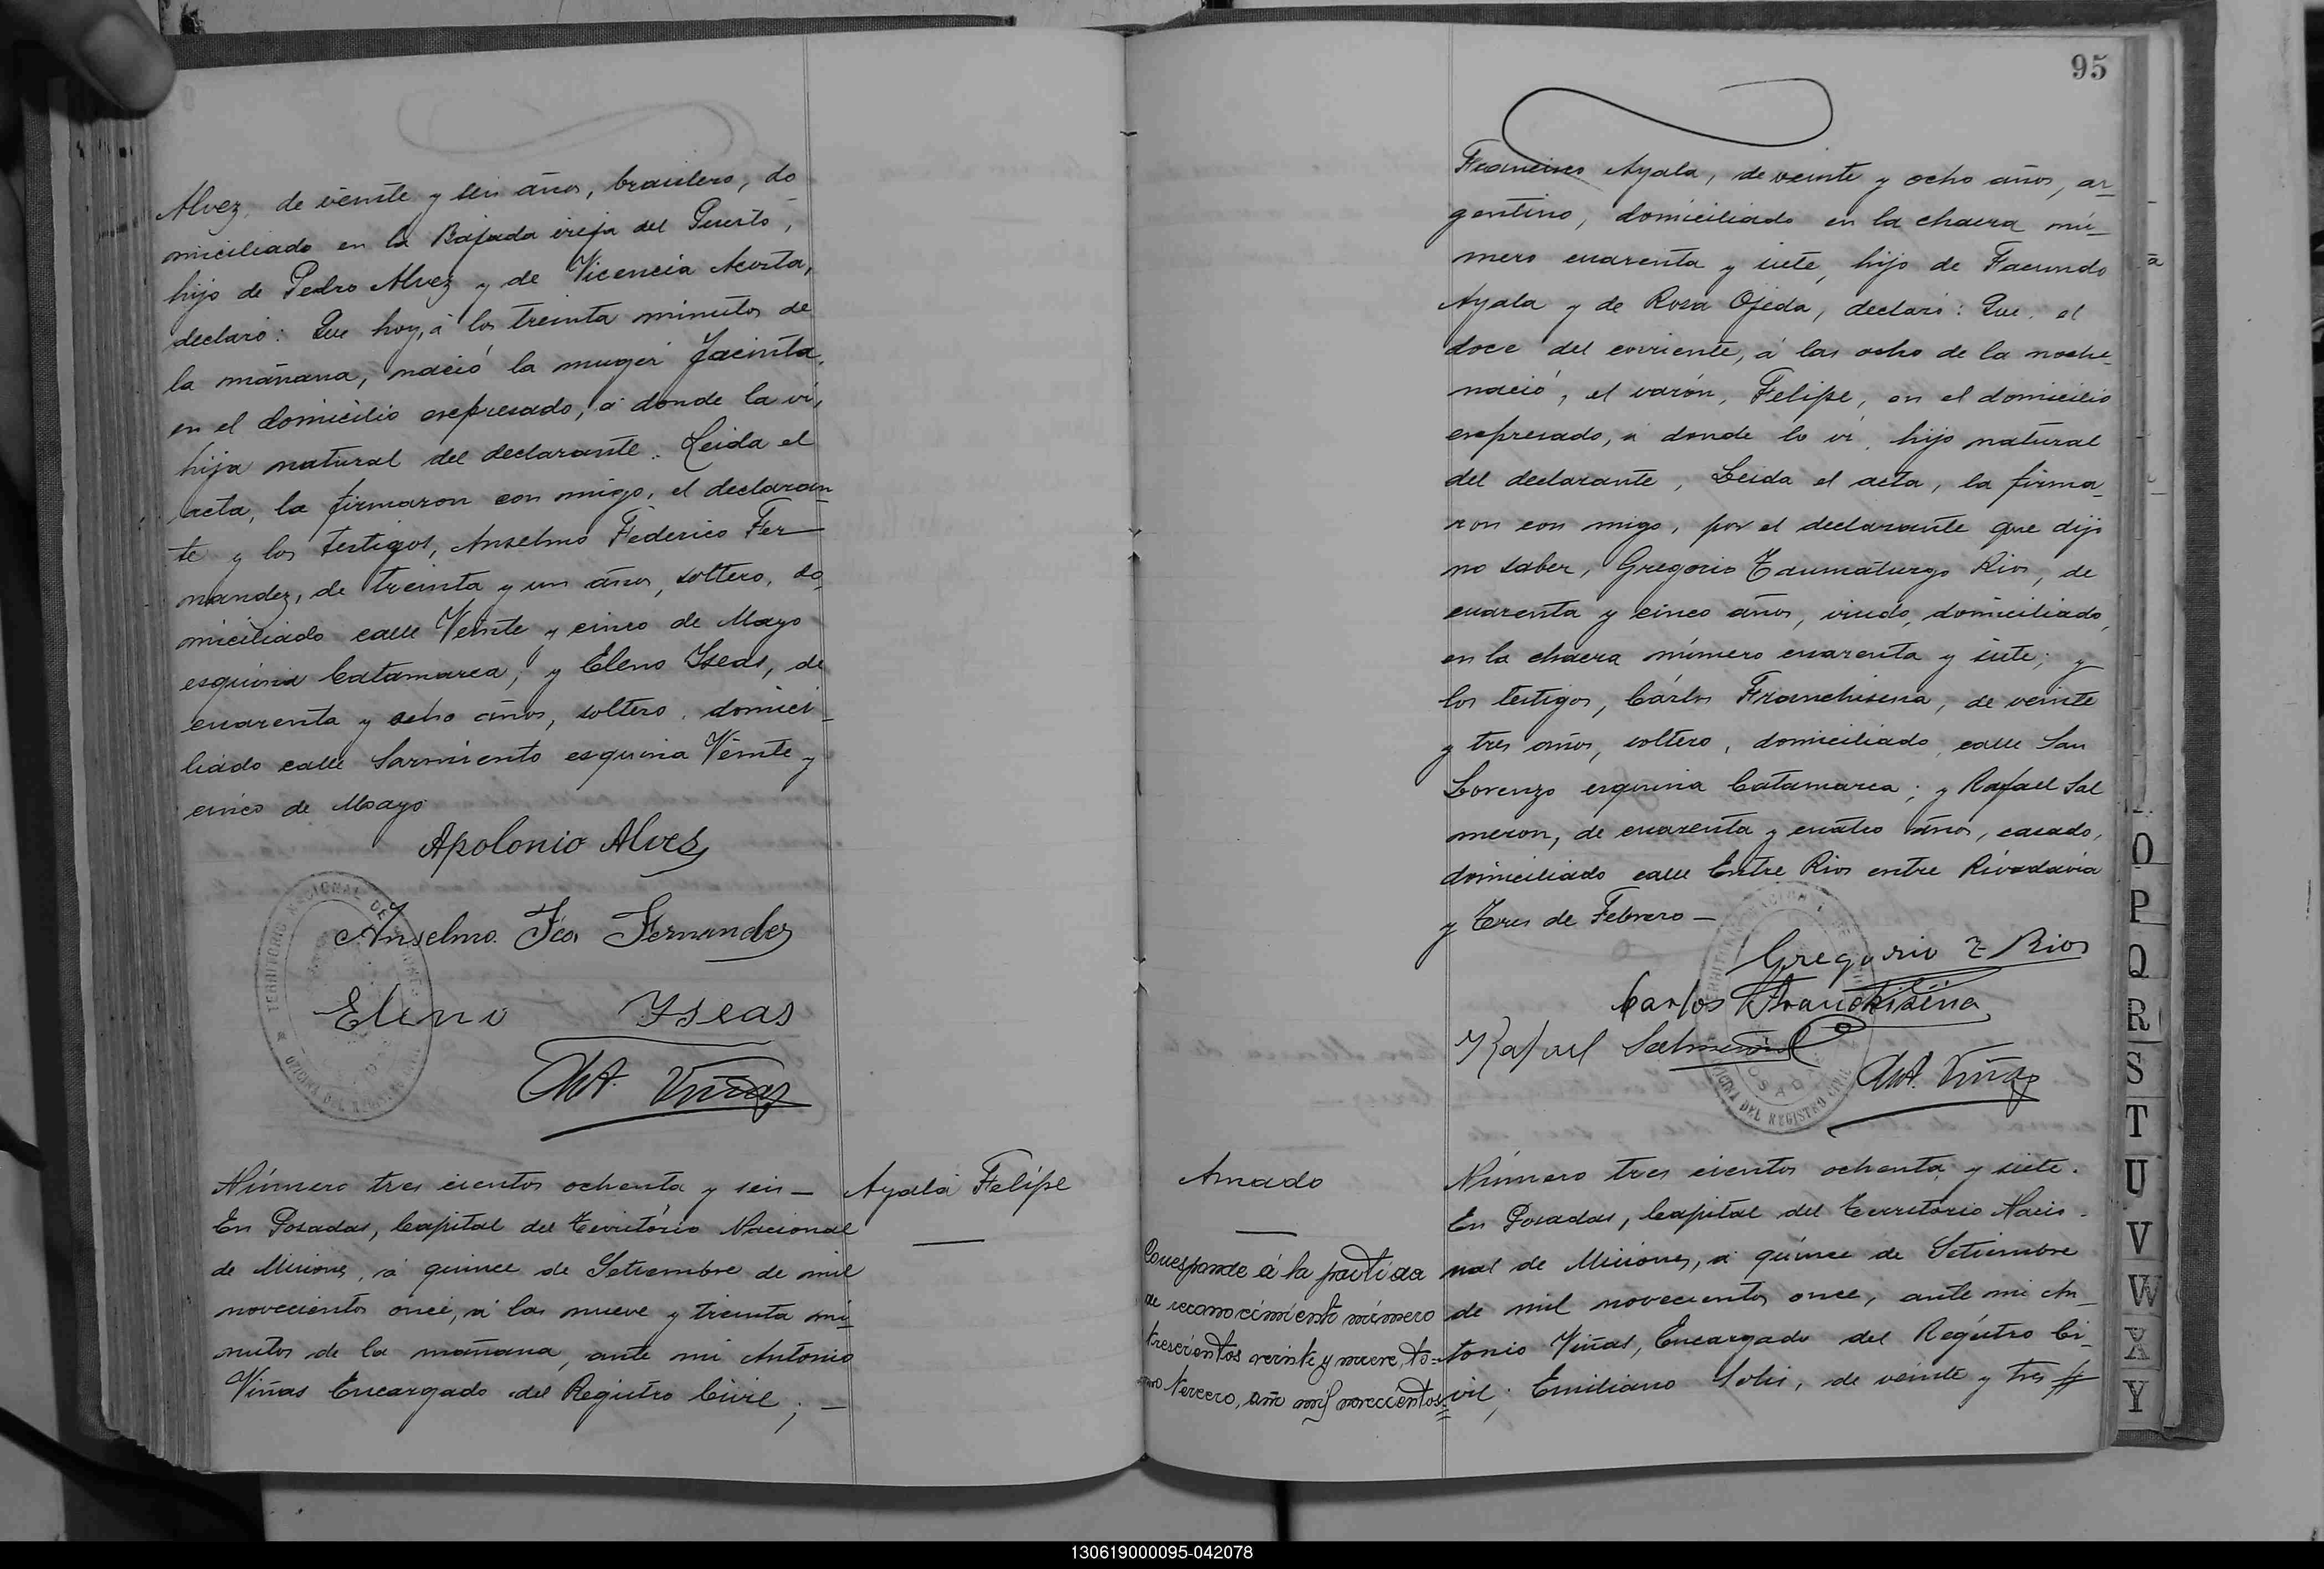 Alvez, de veinte y seis años, brasilero, do
miciliado en la Bajada vieja del Puerto,
hijo de Pedro Alvez y de Vicencia Acosta,
declaró: Que hoy, á los treinta minutos de
la mañana, nació la muger Jacinta,
en el domicilio expresado, á donde la ví,
hija natural del declarante. Leida el
acta, la firmaron con migo, el declaran-
te y los testigos, Anselmo Federico Fer-
nandez, de treinta y un años, soltero, do-
miciliado calle Veinte y cinco de Mayo
esquina Catamarca; y Eleno Yseas, de
cuarenta y ocho años, soltero, domici-
liado calle Sarmiento esquina Veinte y
cinco de Mayo
Apolonio Alves
Anselmo Fco. Fernandez
Eleno Yseas
Ant. Viñas
Número tres cientos ochenta y seis —
En Posadas, Capital del Territorio Nacional
de Misiones, á quince de Setiembre de mil
novecientos once, á las nueve y treinta mi-
nutos de la mañana, ante mi Antonio
Viñas Encargado del Registro Civil; —
Ayala Felipe
95
Francisco Ayala, de veinte y ocho años, ar-
gentino, domiciliado en la chacra nú-
mero cuarenta y siete, hijo de Facundo
Ayala y de Rosa Ojeda, declaró: Que el
doce del corriente, á las ocho de la noche
nació, el varón, Felipe, en el domicilio
expresado, á donde lo ví, hijo natural
del declarante, Leida el acta, la firma-
ron con migo, por el declarante que dijo
no saber, Gregorio Taumaturgo Rios, de
cuarenta y cinco años, viudo, domiciliado,
en la chacra número cuarenta y siete; y
los testigos, Cárlos Franchisena, de veinte
y tres años, soltero, domiciliado, calle San
Lorenzo esquina Catamarca; y Rafael Sal
meron, de cuarenta y cuatro años, casado,
domiciliado calle Entre Rios entre Rivadavia
y Tres de Febrero —
Gregorio T Rios
Carlos Franchisena
Rafael Salmerón
Ant. Viñas
Amado
Corresponde á la partida
de reconocimiento número
trescientos veinte y nueve, to-
mo tercero, año mil novecientos
Número tres cientos ochenta y siete.
En Posadas, Capital del Territorio Nacio-
nal de Misiones, á quince de Setiembre
de mil novecientos once, ante mi An-
tonio Viñas, Encargado del Registro Ci-
vil; Emiliano Solis, de veinte y tres
O
P
Q
R
S
T
U
V
W
X
Y
130619000095-042078